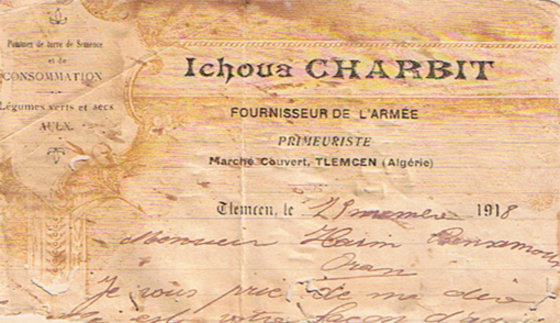 Pommes de terre de Semence
et de
CONSOMMATION
Légumes verts et secs
AULX
Ichoua CHARBIT
FOURNISSEUR DE L'ARMÉE
PRIMEURISTE
Marché Couvert, TLEMCEN (Algérie)
Tlemcen, le 29 1918
Monsieur Haim
Oran
Je vous prie de me dire
est votre façon